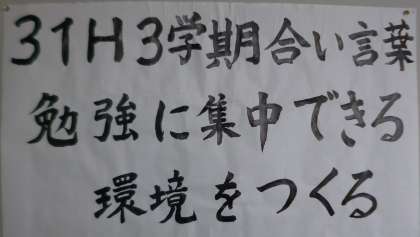 31H3学期合い言葉
勉強に集中できる
環境をつくる